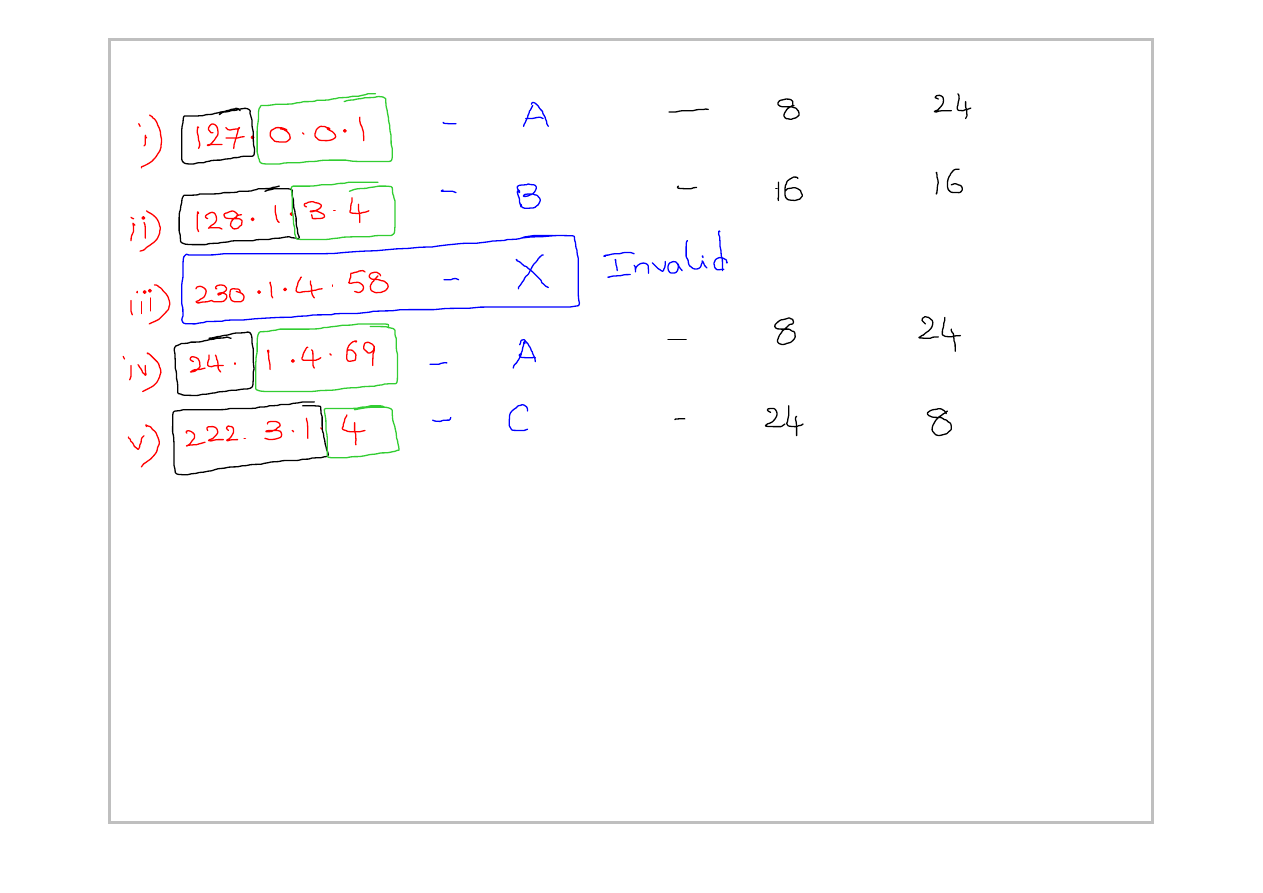 i) 127. 0.0.1 - A — 8 24
ii) 128.1. 3.4 - B - 16 16
iii) 230.1.4.58 - X Invalid
iv) 24. 1.4.69 - A - 8 24
v) 222.3.1 4 - C - 24 8